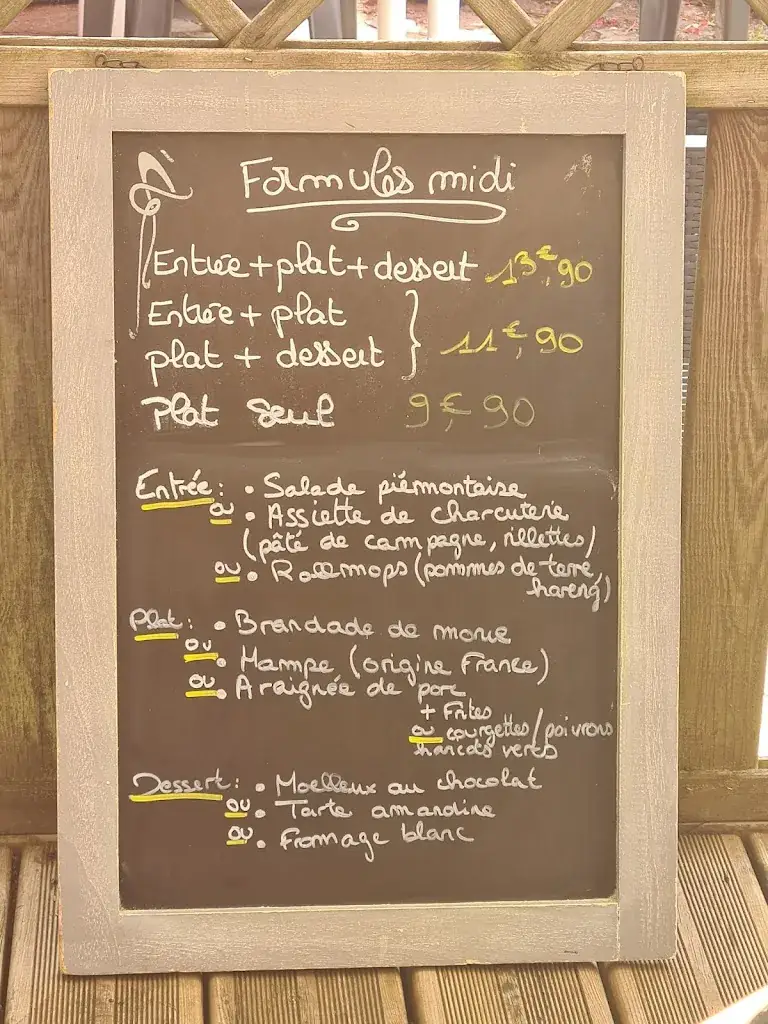 Formules midi
Entrée+plat+dessert 13€,90
Entrée + plat
plat + dessert } 11€,90
Plat seul 9€,90
Entrée : • Salade piémontaise
ou • Assiette de charcuterie
(pâté de campagne, rillettes)
ou • Rollmops (pommes de terre,
hareng)
Plat : • Brandade de morue
ou • Hampe (origine France)
ou • Araignée de porc
+ Frites
ou courgettes/poivrons
haricots verts
Dessert : • Moelleux au chocolat
ou • Tarte amandine
ou • Fromage blanc